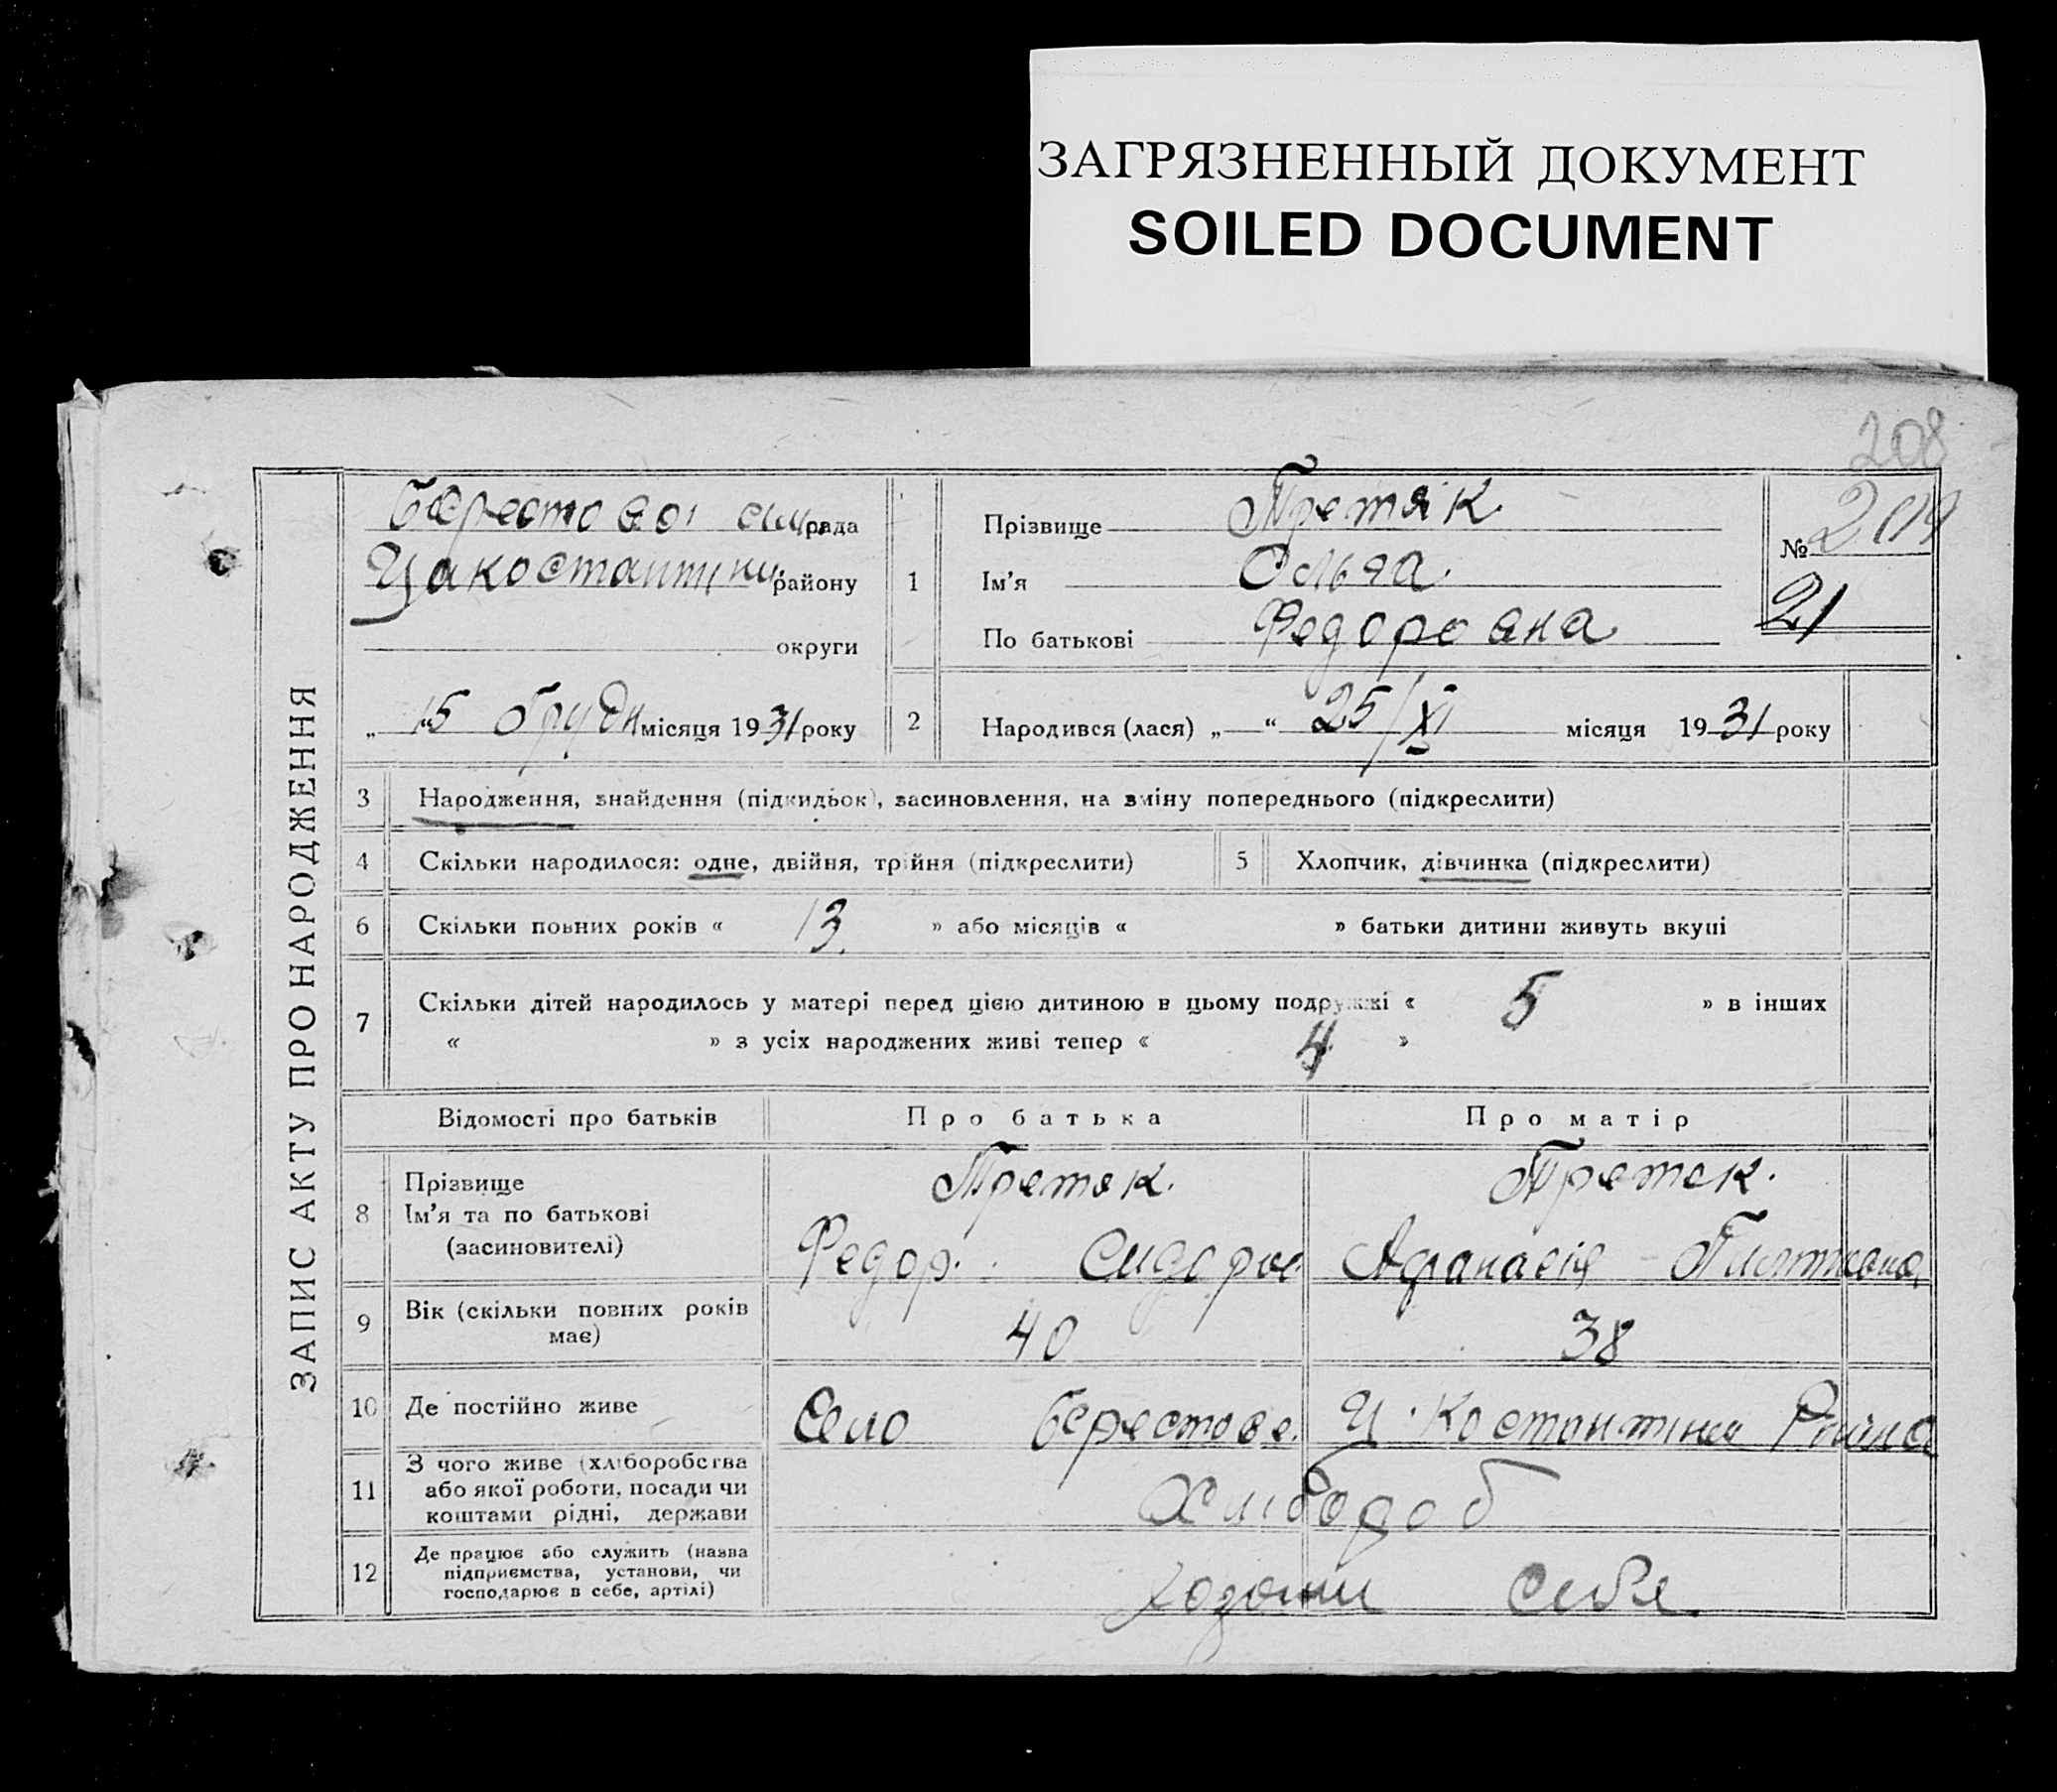 ЗАГРЯЗНЕННЫЙ ДОКУМЕНТ
SOILED DOCUMENT
208
ЗАПИС АКТУ ПРО НАРОДЖЕННЯ
Берестовоі сил рада
району
округи
„ 15 грудн місяця 1931 року
1
Прізвище Третяк
Ім'я Ольга
По батькові Федоровна
№ 209
21
2 Народився (лася) „ “ 25/XI місяця 1931 року
3 Народження, знайдення (підкидьок), засиновлення, на зміну попереднього (підкреслити)
4 Скільки народилося: одне, двійня, трійня (підкреслити)
5 Хлопчик, дівчинка (підкреслити)
6 Скільки повних років « 13 » або місяців « » батьки дитини живуть вкупі
7 Скільки дітей народилось у матері перед цією дитиною в цьому подружжі « 5 » в інших
« » з усіх народжених живі тепер « 4 »
Відомості про батьків Про батька Про матір
8 Прізвище Третяк. Третяк.
Ім'я та по батькові
(засиновителі) Федор Сидоров Афанасія
9 Вік (скільки повних років має) 40 38
10 Де постійно живе Село Берестове.
11 З чого живе (хліборобства
або якої роботи, посади чи
коштами рідні, держави
12 Де працює або служить (назва
підприємства, установи, чи
господарює в себе, артілі)